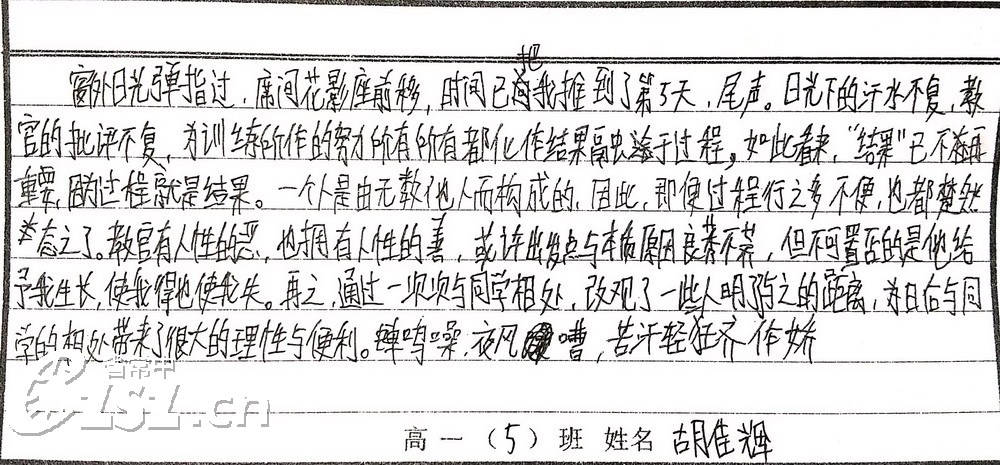 窗外日光弹指过，席间花影座前移，时间已把我推到了第5天，尾声。日光下的汗水不复，教
官的批评不复，为训练所作的努力所有所有都化作结果融于过程。如此看来，"结果"已不再
重要，因为过程就是结果。一个人是由无数他人而构成的，因此，即便过程行之多不便，也都楚然
态之了。教官有人性的恶，也拥有人性的善，或许出发点与本质原因良莠不莠，但不可置否的是他给
予我生长，使我得也使我失。再之，通过一项项与同学相处，改观了一些人明了与之的距离，为日后与同
学的相处带来了很大的理性与便利。蝉鸣噪，夜风嘈，苦汗轻狂齐作娇
省常中
CZSLSZ.cn
高一（5）班 姓名 胡佳辉